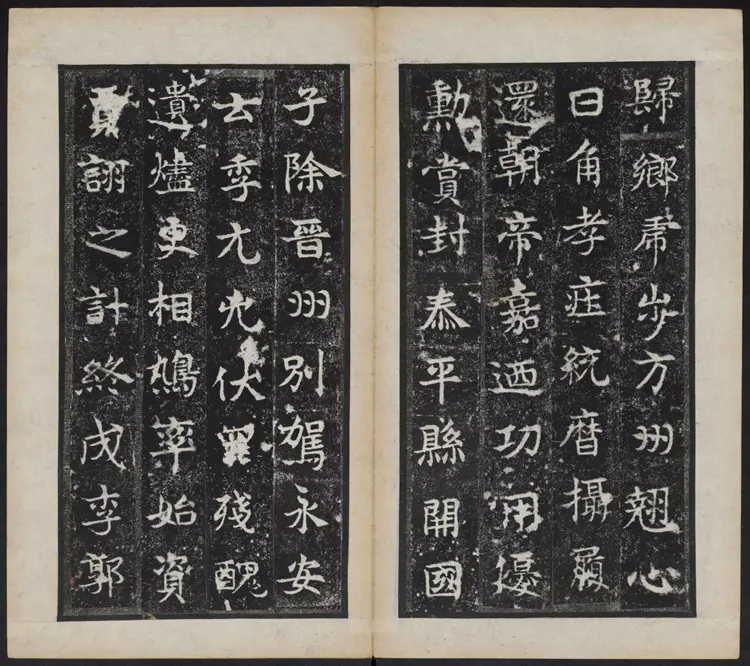 歸鄉虎步方州翹心
日角孝莊統曆攝履
還朝帝嘉迺功用優
勳賞封泰平縣開國
子除晉州別駕永安
云季元兇伏罪殘醜
遺燼更相鳩率始資
賈詡之計終成李郭